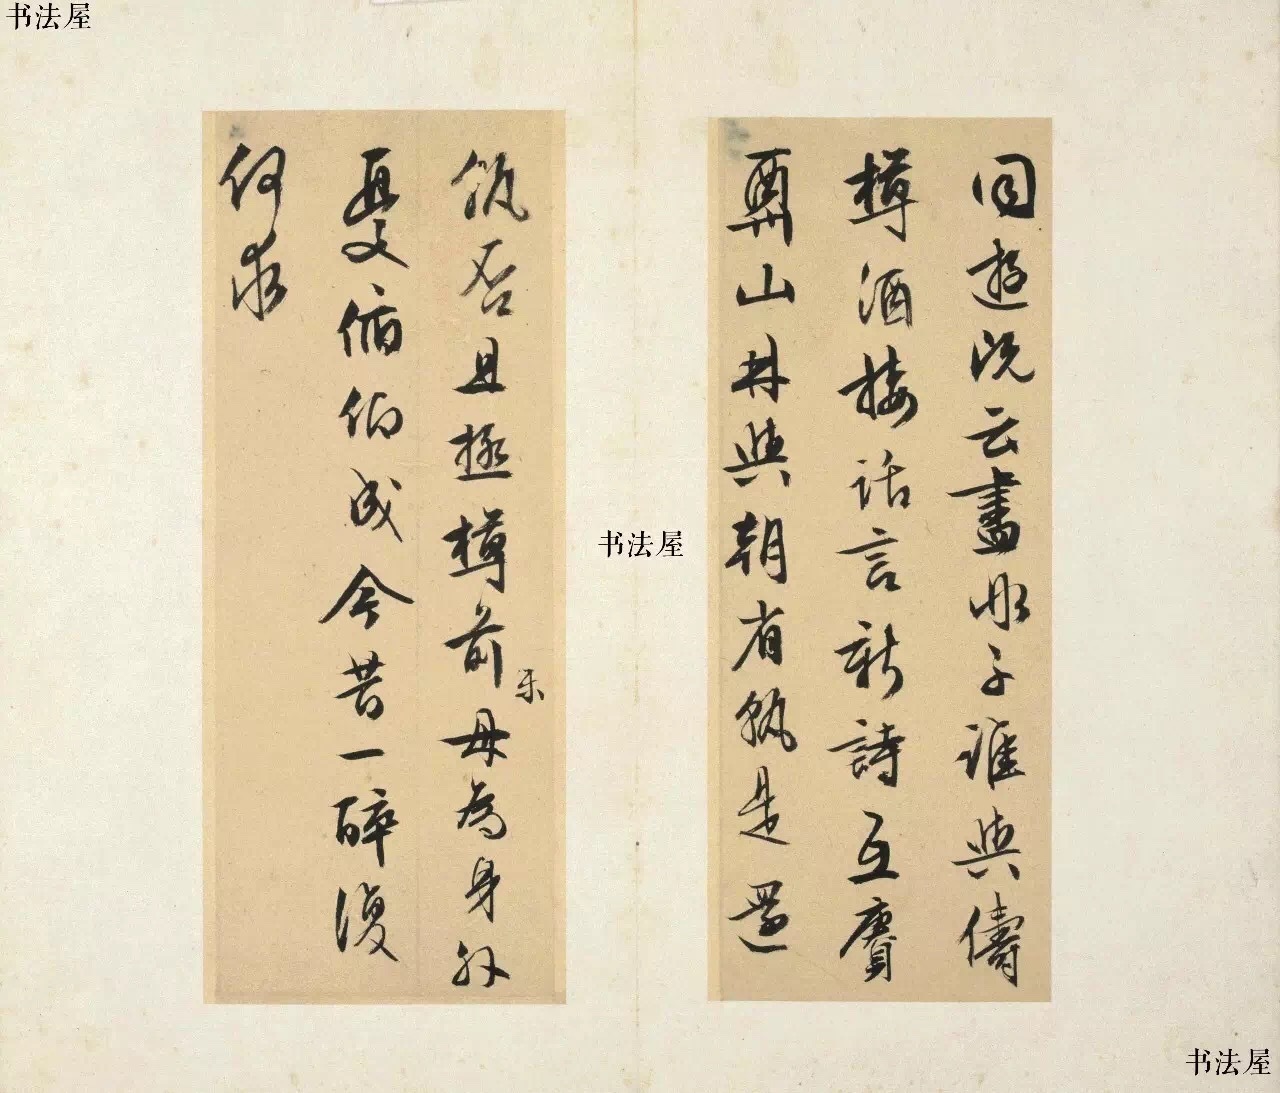 书法屋
同遊況云盡非子誰與儔
樽酒接話言新詩互賡
酬山林與朝省孰是還
孰否且極樽前樂毋為身外
憂俯仰成今昔一醉復
何求
书法屋
书法屋